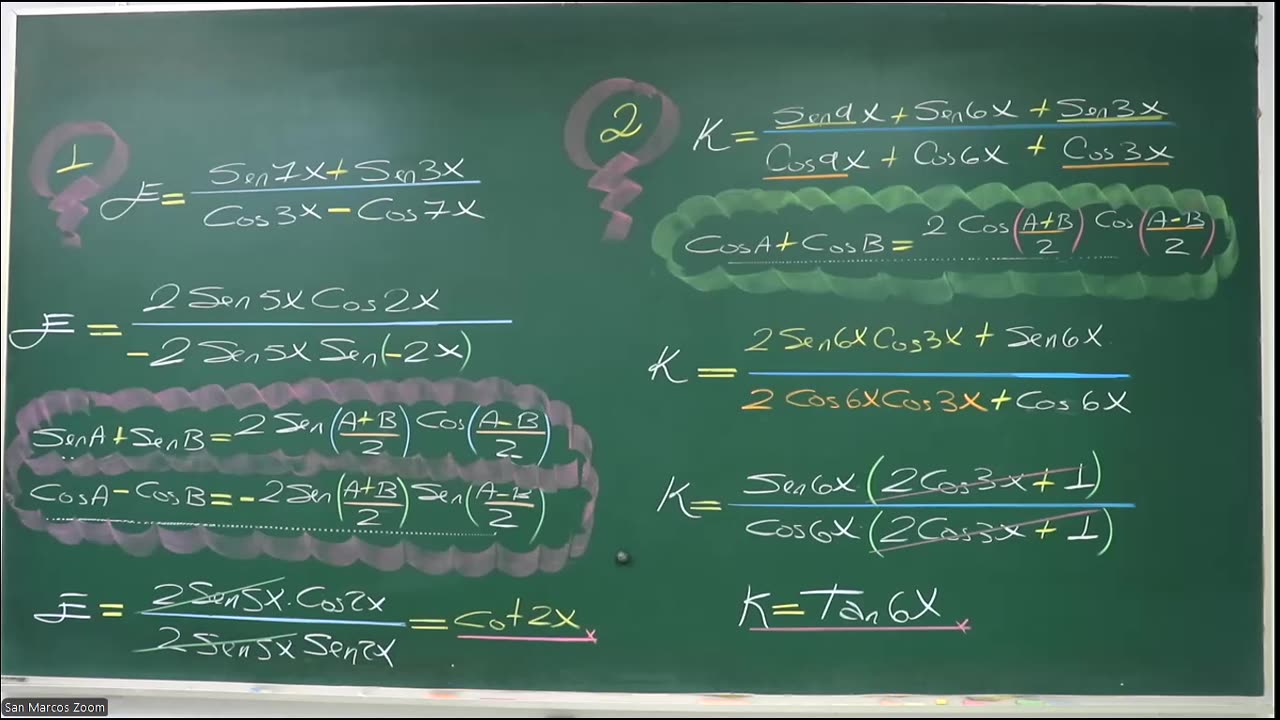 1
E = Sen7x + Sen3x / Cos3x - Cos7x
E = 2Sen5xCos2x / -2Sen5xSen(-2x)
SenA + SenB = 2Sen(A+B/2) Cos(A-B/2)
CosA - CosB = -2Sen(A+B/2) Sen(A-B/2)
E = 2Sen5x.Cos2x / 2Sen5xSen2x = cot2x
2
K = Sen9x + Sen6x + Sen3x / Cos9x + Cos6x + Cos3x
CosA + CosB = 2Cos(A+B/2) Cos(A-B/2)
K = 2Sen6xCos3x + Sen6x / 2Cos6xCos3x + Cos6x
K = Sen6x(2Cos3x + 1) / Cos6x(2Cos3x + 1)
K = Tan6x
San Marcos Zoom